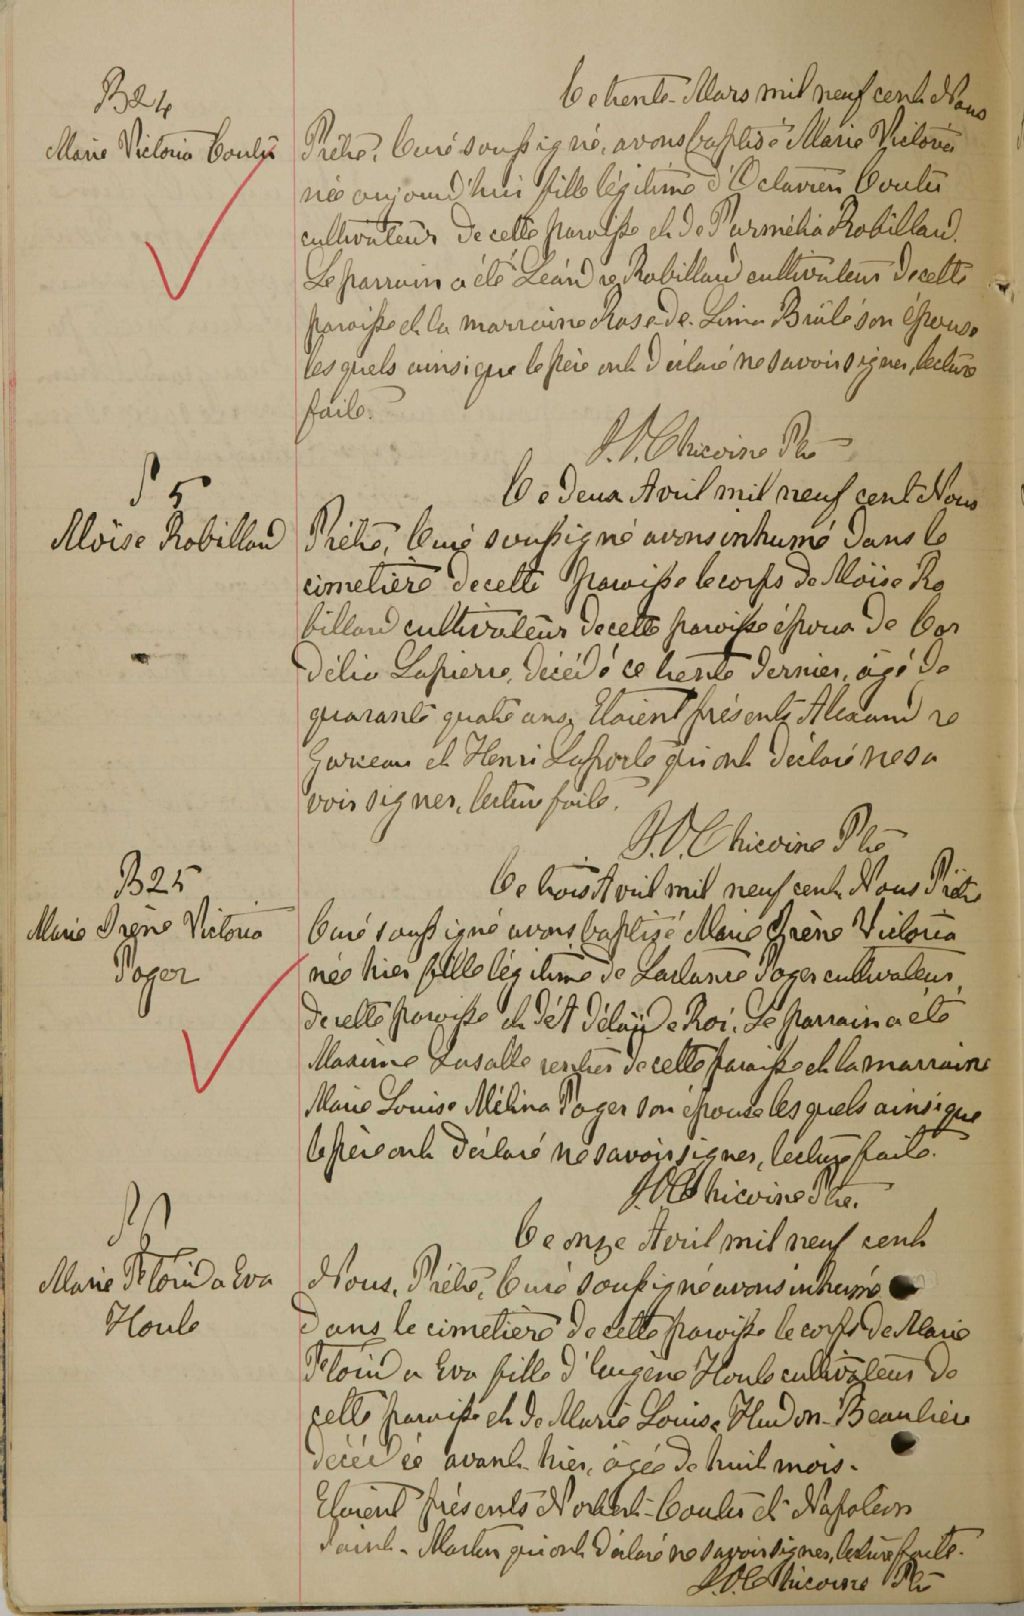 B24
Marie Victoria Coutu
Le trente Mars mil neuf cent Nous
Prêtre, Curé soussigné, avons baptisé Marie Victoria
née aujourd'hui fille légitime d'Octavien Coutu
cultivateur de cette paroisse et de Parmélia Robillard.
Le parrain a été Léandre Robillard cultivateur de cette
paroisse et la marraine Rose de Lima Brûlé son épouse
lesquels ainsi que le père ont déclaré ne savoir signer, lecture
faite.
J.O. Chicoine Ptre
S 5
Moïse Robillard
Le deux Avril mil neuf cent Nous
Prêtre, Curé soussigné avons inhumé dans le
cimetière de cette paroisse le corps de Moïse Ro
billard cultivateur de cette paroisse époux de Cor
délia Lapierre, décédé ce trente dernier, âgé de
quarante quatre ans. Etaient présents Alexandre
Garceau et Henri Laporte qui ont déclaré ne sa
voir signer, lecture faite.
J.O. Chicoine Ptre
B25
Marie Irène Victoria
Poger
Le trois Avril mil neuf cent Nous Prêtre
Curé soussigné avons baptisé Marie Irène Victoria
née hier fille légitime de Poger cultivateur
de cette paroisse et d'Adélaïde Roi. Le parrain a été
Maxime Lasalle rentier de cette paroisse et la marraine
Marie Louise Mélina Poger son épouse lesquels ainsi que
le père ont déclaré ne savoir signer, lecture faite.
J.O. Chicoine Ptre.
S 6
Marie Florida Eva
Houle
Le onze Avril mil neuf cent
Nous, Prêtre, Curé soussigné avons inhumé
dans le cimetière de cette paroisse le corps de Marie
Florida Eva fille d'Eugène Houle cultivateur de
cette paroisse et de Marie Louise Hudon-Beaulieu
décédée avant-hier, âgée de huit mois.
Etaient présents Norbert Coutu et Napoléon
Saint-Martin qui ont déclaré ne savoir signer, lecture faite.
J.O. Chicoine Ptre